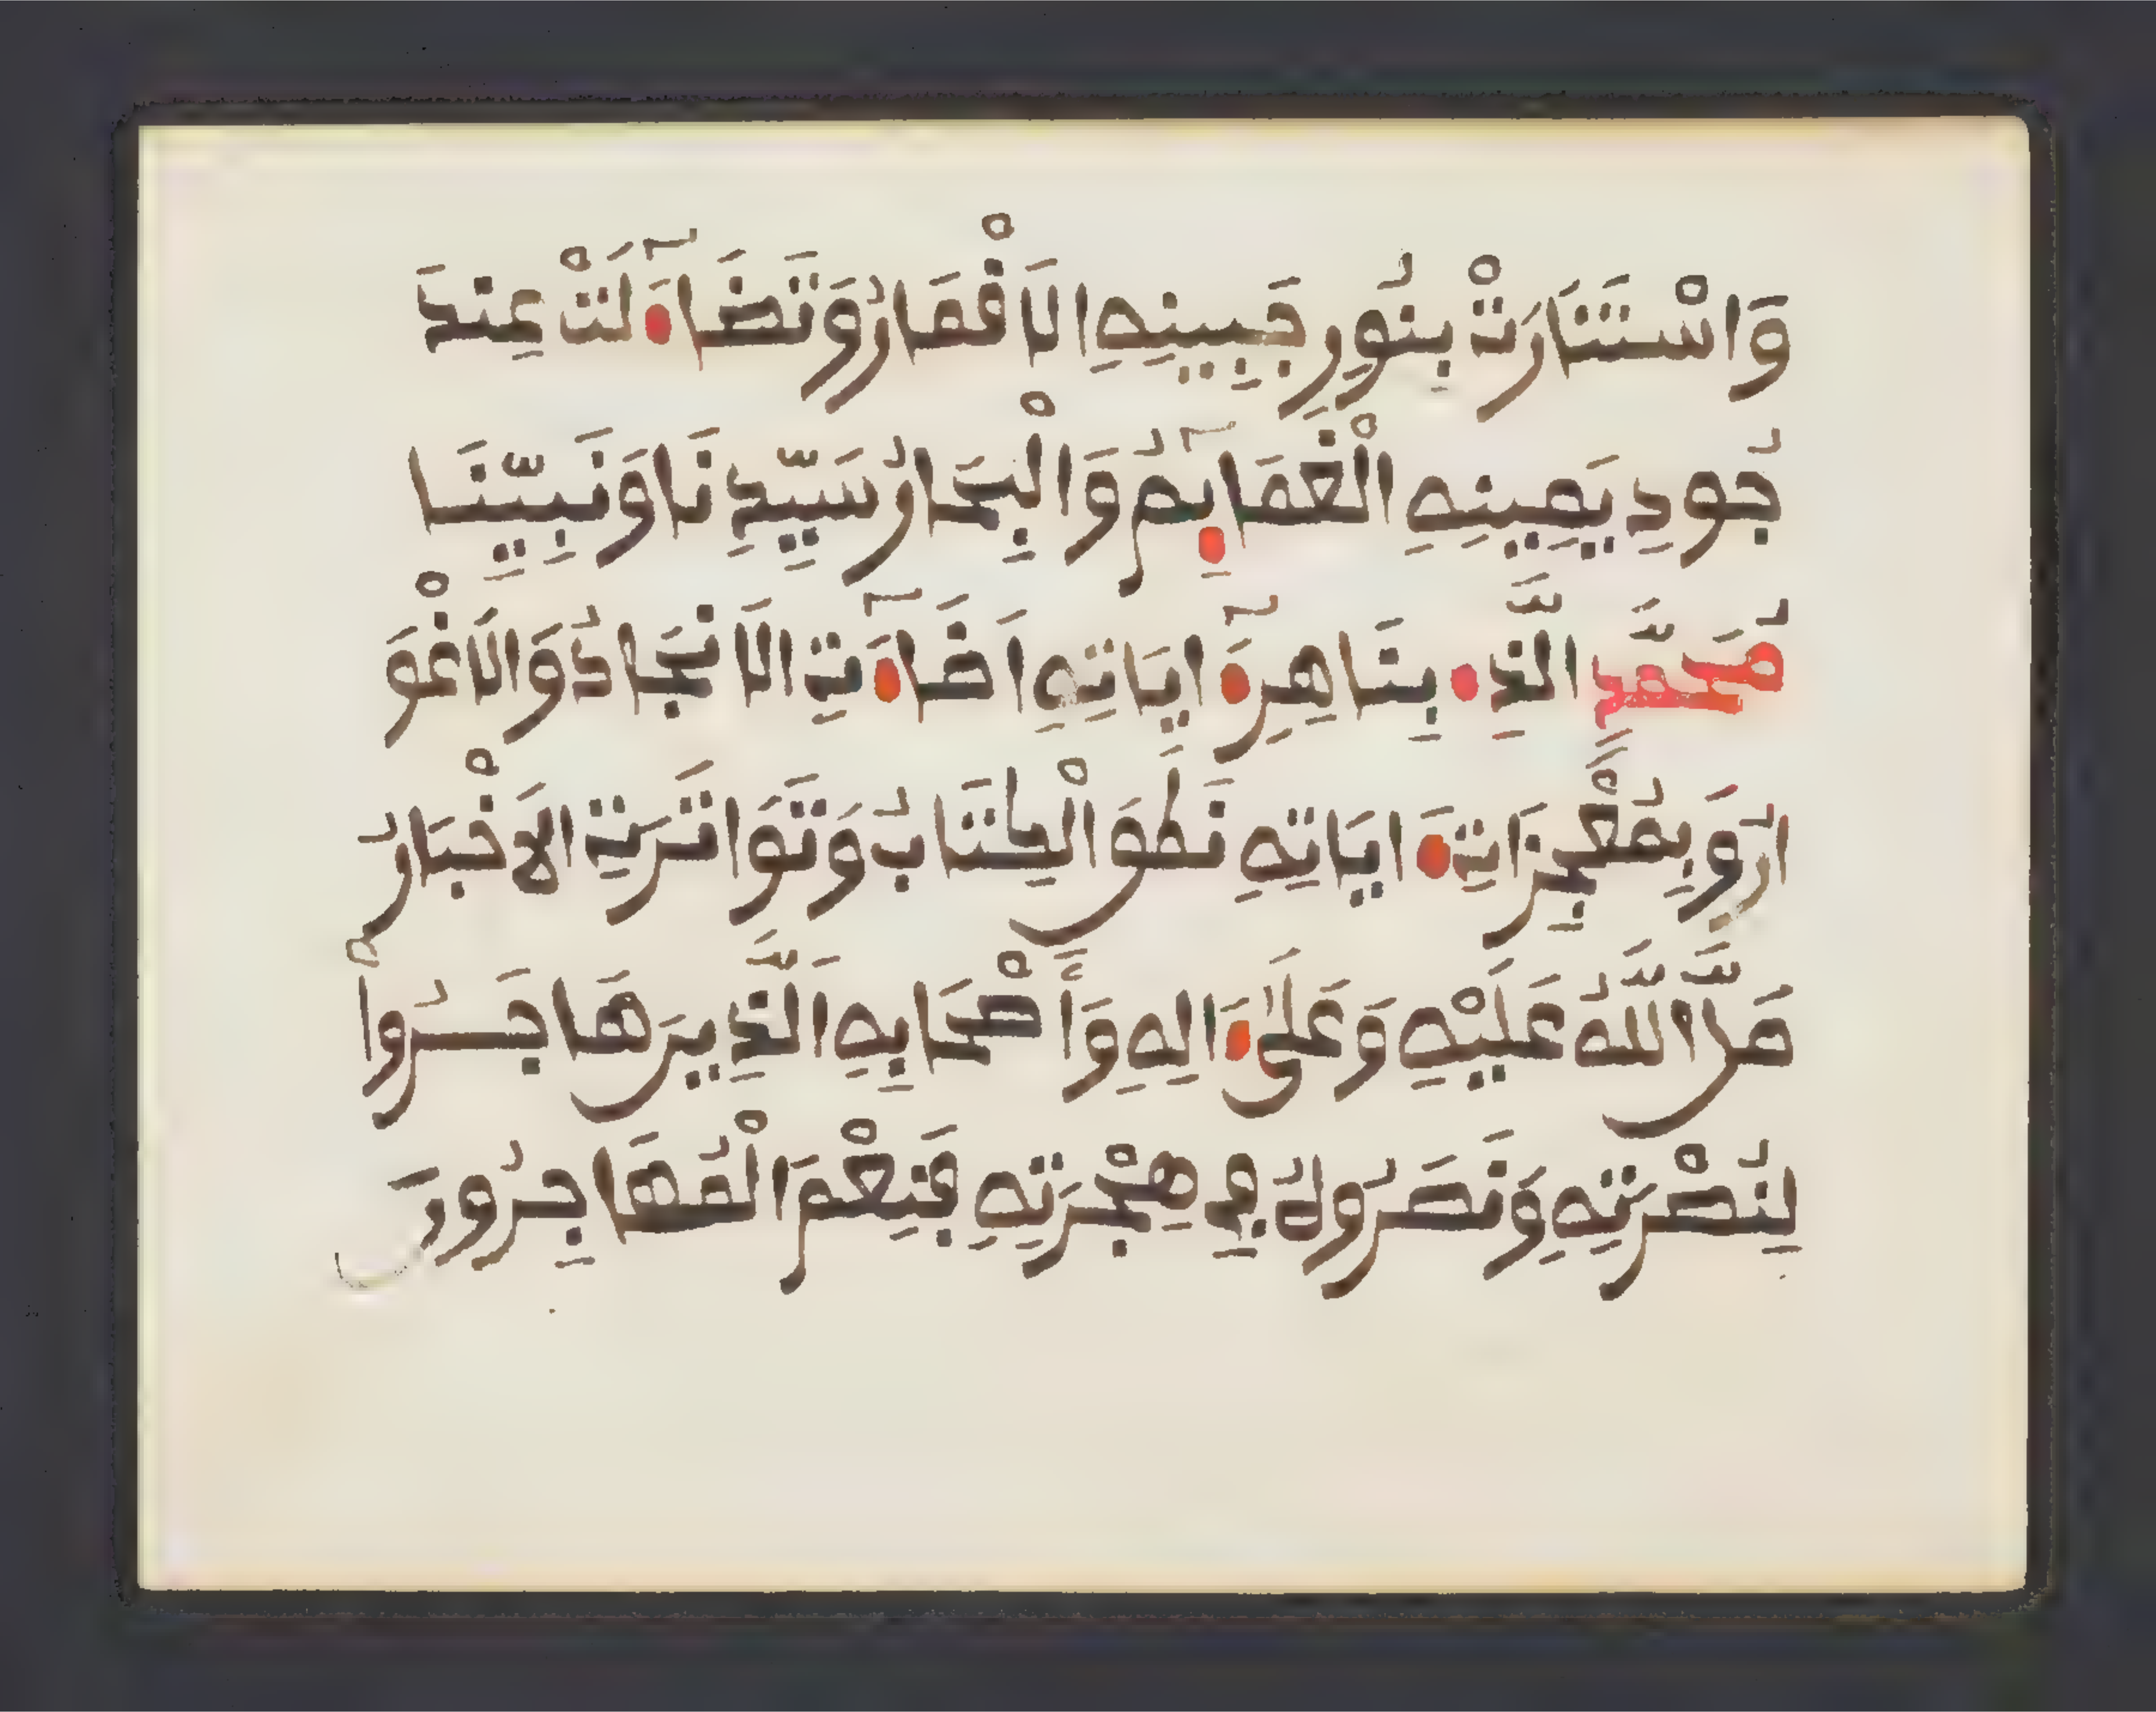 وَاسْتَنَارَتْ بِنُورِ جَبِينِهِ الَاقْمَارُ وَتَضَاءَلَتْ عِندَ
جُودِ يَمِينِهِ الْغَمَايِمُ وَالْبِحَارُ سَيِّدِنَا وَنَبِيِّنَا
مُحَمَّدٍ الَّذِے بِبَاهِرِ ءَايَاتِهِ أَضَاءَتِ الَانجَادُ وَالَاغْوَ
ارُ وَبِمُعْجِزَاتِ ءَايَاتِهِ نَطَقَ الْكِتَابُ وَتَوَاتَرَتِ الَاخْبَارُ
صَلَّى اللَّهُ عَلَيْهِ وَعَلَىٰ ءَالِهِ وَأَصْحَابِهِ الَّذِينَ هَاجَرُوا
لِنُصْرَتِهِ وَنَصَرُوهُ فِي هِجْرَتِهِ فَنِعْمَ الْمُهَاجِرُونَ